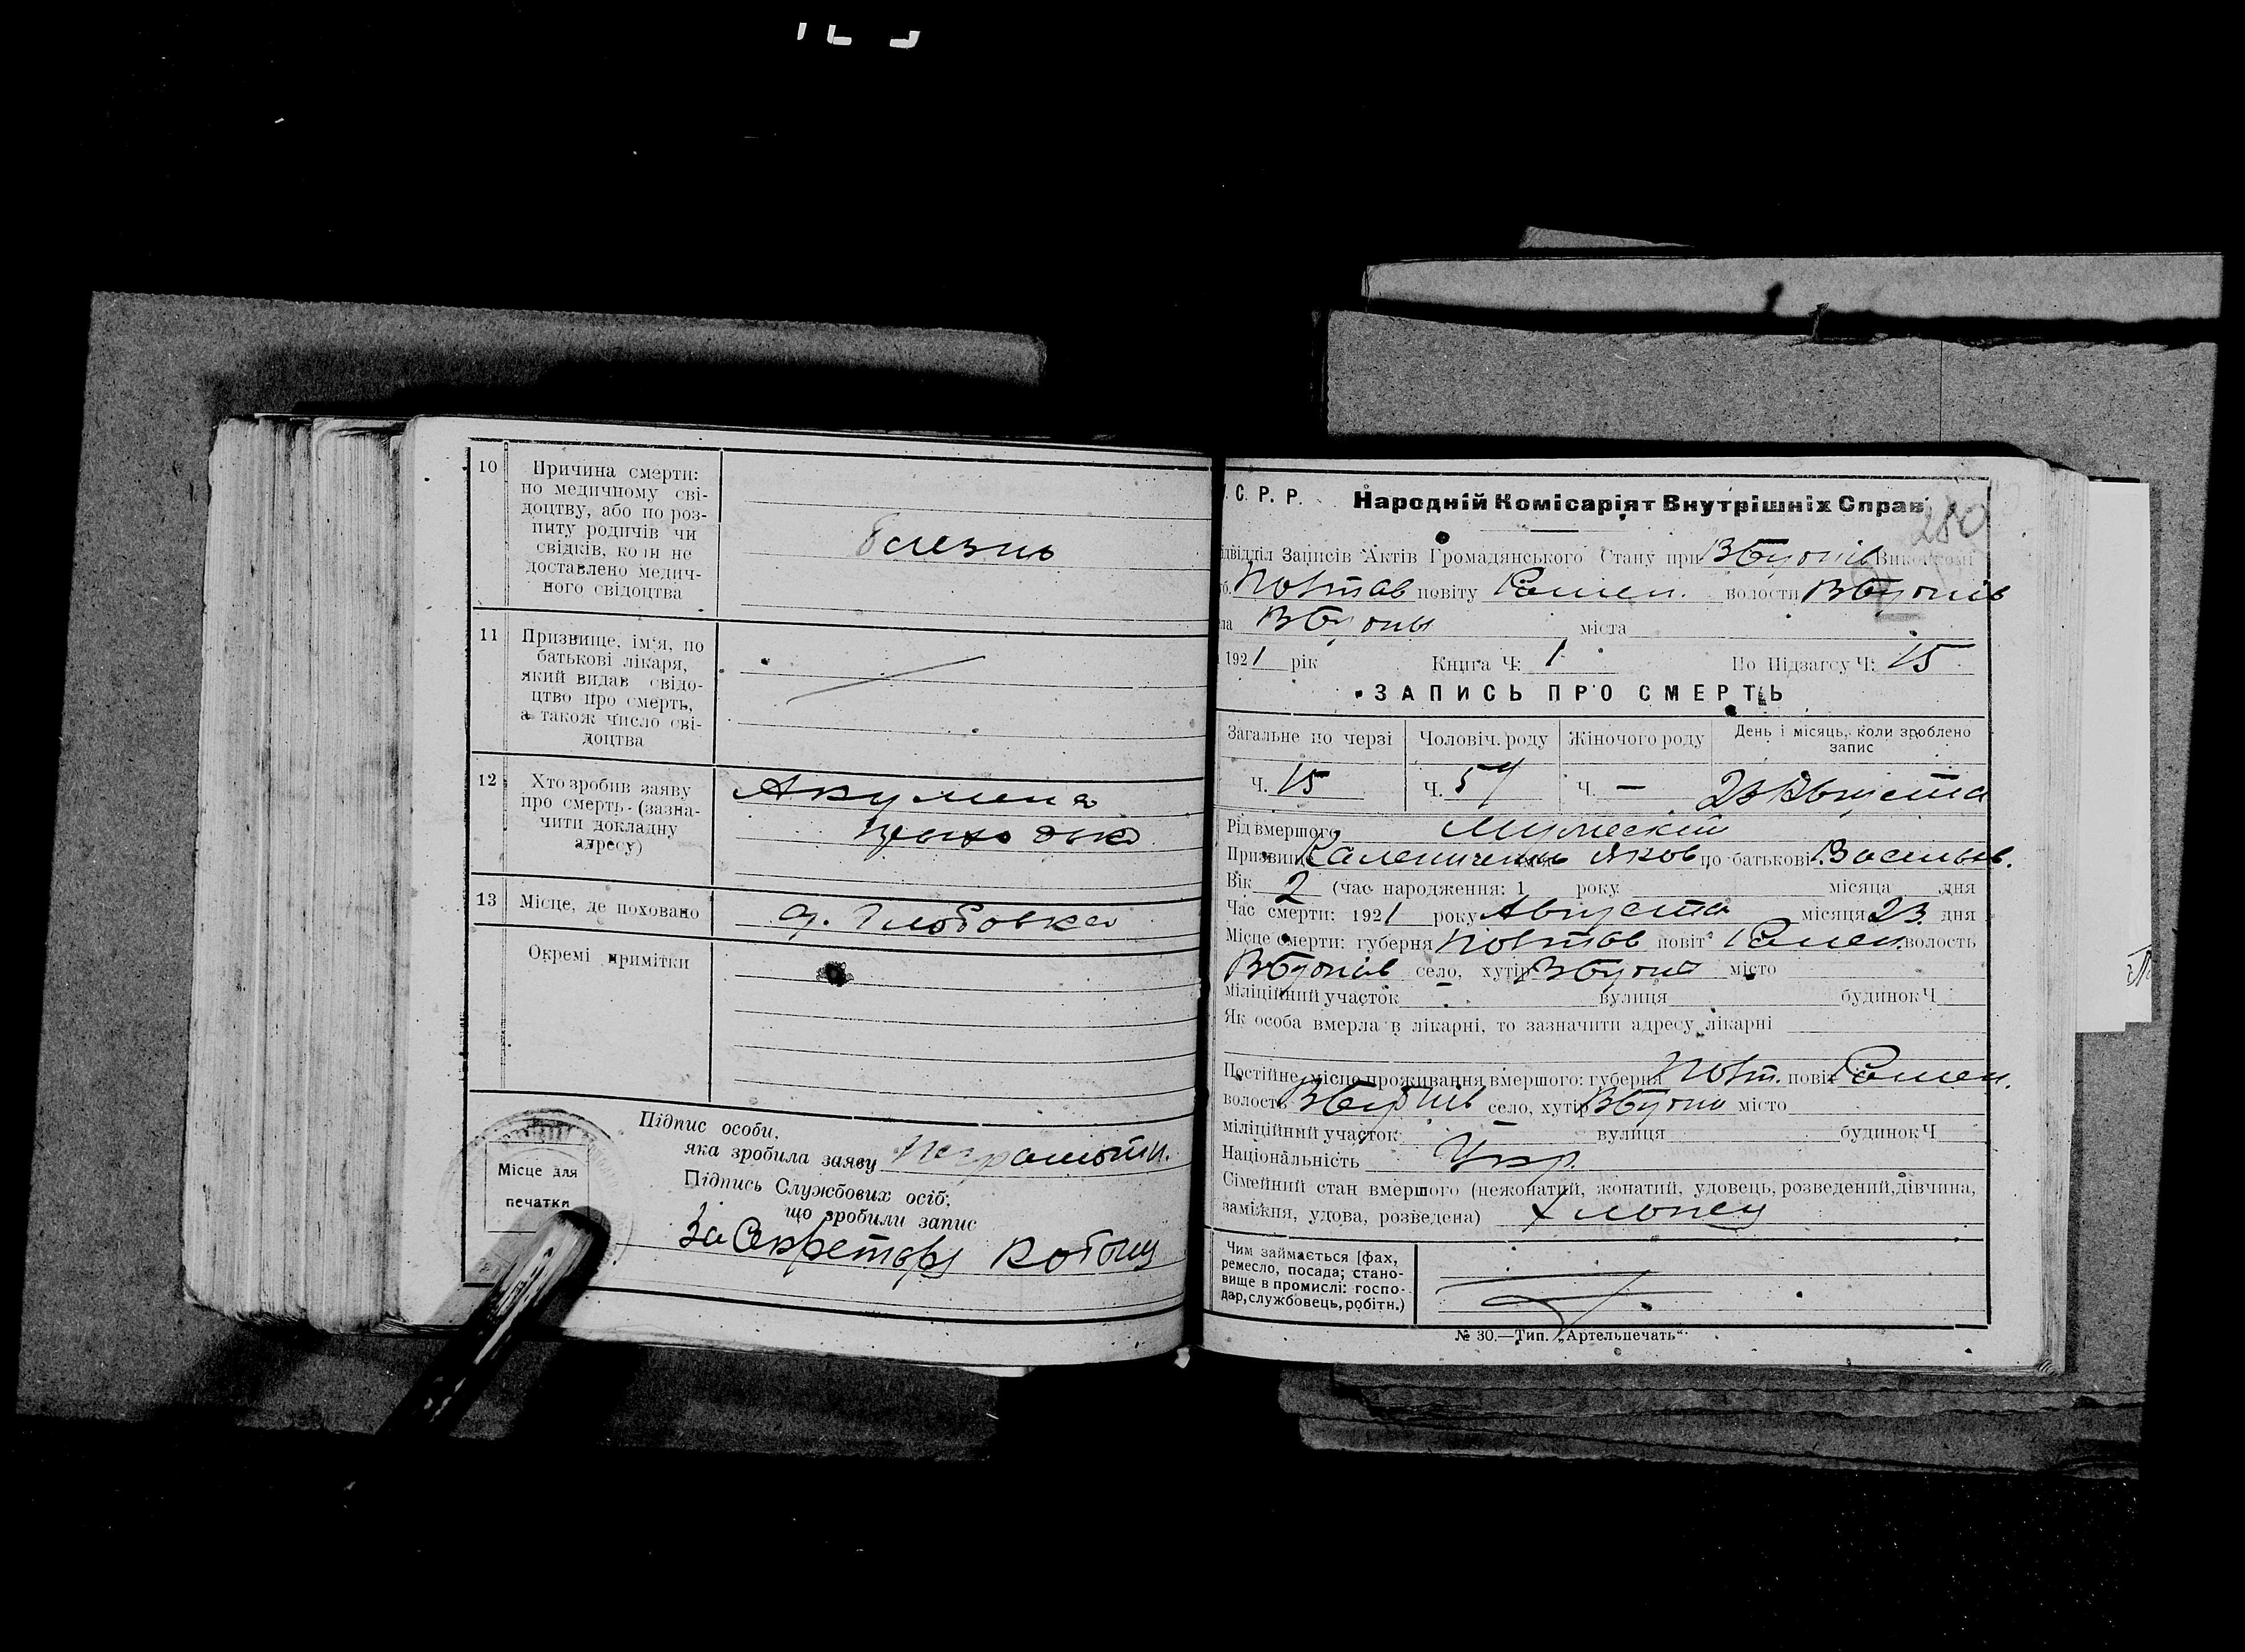 10
Причина смерти:
по медичному сві-
доцтву, або по роз-
питу родичів чи
свідків, коли не
доставлено медич-
ного свідоцтва
болезнь
11
Призвище, ім'я, по
батькові лікаря,
який видав свідо-
цтво про смерть,
а також число сві-
доцтва
12
Хто зробив заяву
про смерть (зазна-
чити докладну
адресу)
Акулина
13
Місце, де поховано
Окремі примітки
Підпис особи,
яка зробила заяву неграмотн.
Місце для
печатки
Підпись Службових осіб,
що зробили запис
За Секретаря
С. Р. Р. Народній Комісаріят Внутрішніх Справ
280
Записів Актів Громадянського Стану при
Полтав повіту Ромен. волости
міста
1921 рік Книга Ч: 1 По Підзагсу Ч: 15
ЗАПИСЬ ПРО СМЕРТЬ
Загальне по черзі Чоловіч. роду Жіночого роду День і місяць, коли зроблено
запис
Ч. 15 Ч. Ч. — 23 Августа
Рід вмершого Мужеский
Призвище Яков по батькові Васильев.
Вік 2 (час народження: 1 року місяца дня
Час смерти: 1921 року Августа місяця 23 дня
Місце смерти: губерня Полтав повіт Ромен. волость
село, хутір місто
міліційний участок — вулиця будинок Ч
Як особа вмерла в лікарні, то зазначити адресу лікарні
Постійне місце проживання вмершого: губерня Полт. повіт Ромен.
волость село, хутір місто
міліційний участок — вулиця будинок Ч
Національність Укр.
Сімейний стан вмершого (нежонатий, жонатий, удовець, розведений, дівчина,
заміжня, удова, розведена) Хлопец
Чим займається [фах,
ремесло, посада; стано-
вище в промислі: госпо-
дар, службовець, робітн.)
№ 30.—Тип. „Артельпечать"